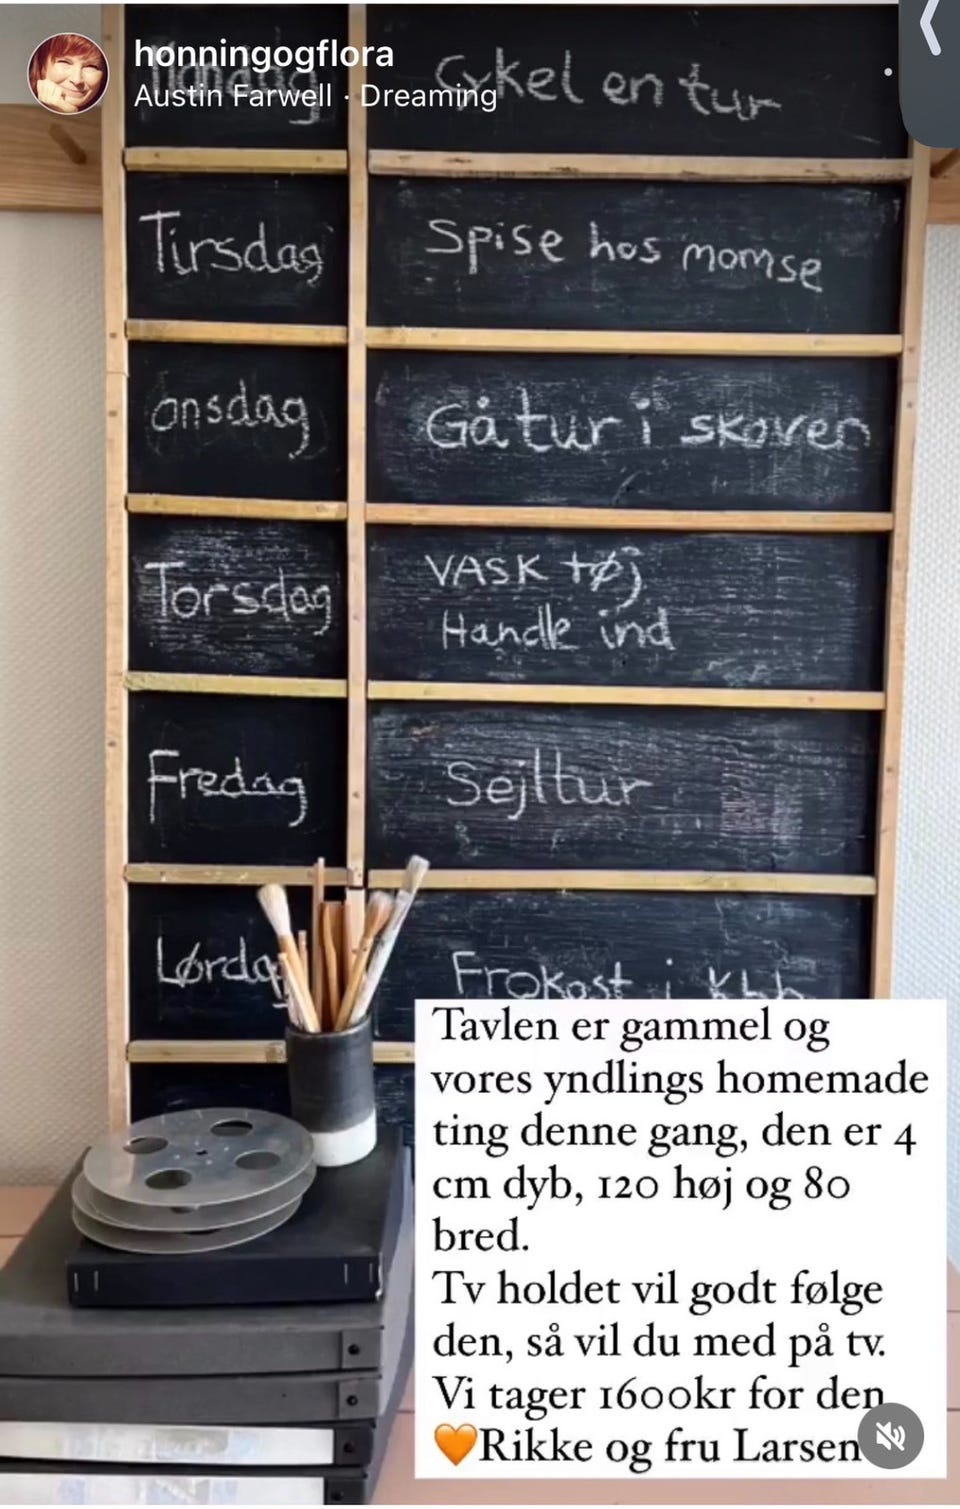 honningogflora
Austin Farwell · Dreaming
Mandag
Cykel en tur
Tirsdag
Spise hos momse
onsdag
Gå tur i skoven
Torsdag
VASK tøj
Handle ind
Fredag
Sejltur
Lørdag
Frokost i
Tavlen er gammel og
vores yndlings homemade
ting denne gang, den er 4
cm dyb, 120 høj og 80
bred.
Tv holdet vil godt følge
den, så vil du med på tv.
Vi tager 1600kr for den
🧡Rikke og fru Larsen